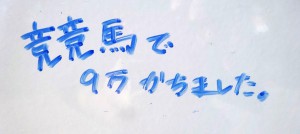 競馬で
9万かちました。